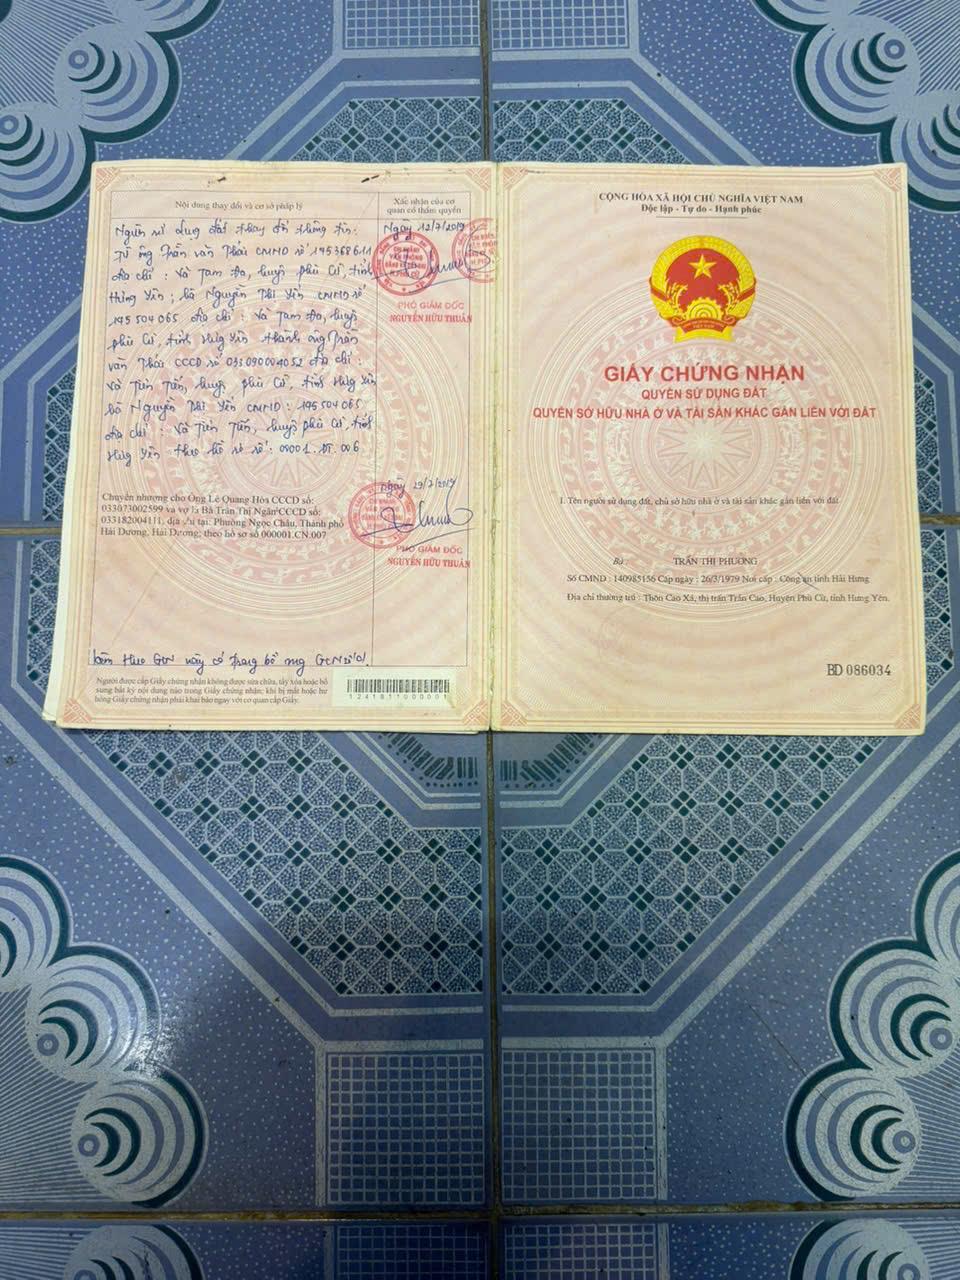 Nội dung thay đổi và cơ sở pháp lý
Xác nhận của cơ
quan có thẩm quyền
Người sử dụng đất thay đổi thông tin:
Từ ông Trần Văn Thái CMND số 145368611
địa chỉ: Xã Tam Đa, huyện Phù Cừ, tỉnh
Hưng Yên; bà Nguyễn Thị Yến CMND số
145504065 địa chỉ: Xã Tam Đa, huyện
Phù Cừ, tỉnh Hưng Yên thành ông Trần
Văn Thái CCCD số 033090004052 địa chỉ:
Xã Tiên Tiến, huyện Phù Cừ, tỉnh Hưng Yên
bà Nguyễn Thị Yến CMND: 145504065
địa chỉ: Xã Tiên Tiến, huyện Phù Cừ, tỉnh
Hưng Yên theo hồ sơ số: 00001.ĐT.006
Ngày 12/7/2019
PHÓ GIÁM ĐỐC
NGUYỄN HỮU THUẬN
Chuyển nhượng cho Ông Lê Quang Hòa CCCD số:
033073002599 và vợ là Bà Trần Thị Ngân CCCD số:
033182004111, địa chỉ tại: Phường Ngọc Châu, Thành phố
Hải Dương, Hải Dương; theo hồ sơ số 000001.CN.007
Ngày 29/7/2019
PHÓ GIÁM ĐỐC
NGUYỄN HỮU THUẬN
kèm theo GCN này có trang bổ sung GCN số 01.
Người được cấp Giấy chứng nhận không được sửa chữa, tẩy xóa hoặc bổ
sung bất kỳ nội dung nào trong Giấy chứng nhận; khi bị mất hoặc hư
hỏng Giấy chứng nhận phải khai báo ngay với cơ quan cấp Giấy.
1241811000001
CỘNG HÒA XÃ HỘI CHỦ NGHĨA VIỆT NAM
Độc lập - Tự do - Hạnh phúc
VIỆT NAM
GIẤY CHỨNG NHẬN
QUYỀN SỬ DỤNG ĐẤT
QUYỀN SỞ HỮU NHÀ Ở VÀ TÀI SẢN KHÁC GẮN LIỀN VỚI ĐẤT
I. Tên người sử dụng đất, chủ sở hữu nhà ở và tài sản khác gắn liền với đất
Bà: TRẦN THỊ PHƯƠNG
Số CMND : 140985156 Cấp ngày : 26/3/1979 Nơi cấp : Công an tỉnh Hải Hưng
Địa chỉ thường trú : Thôn Cao Xá, thị trấn Trần Cao, Huyện Phù Cừ, tỉnh Hưng Yên.
BD 086034